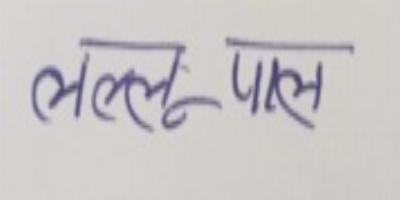 लल्लू पाल